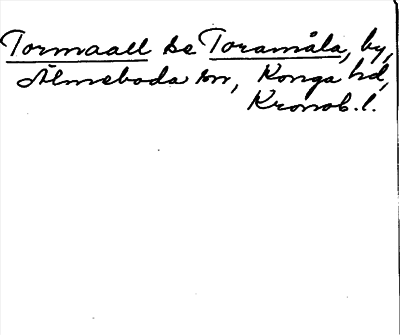 Tormaall se Toramåla, by,
Älmeboda sn, Konga hd,
Kronob. l.